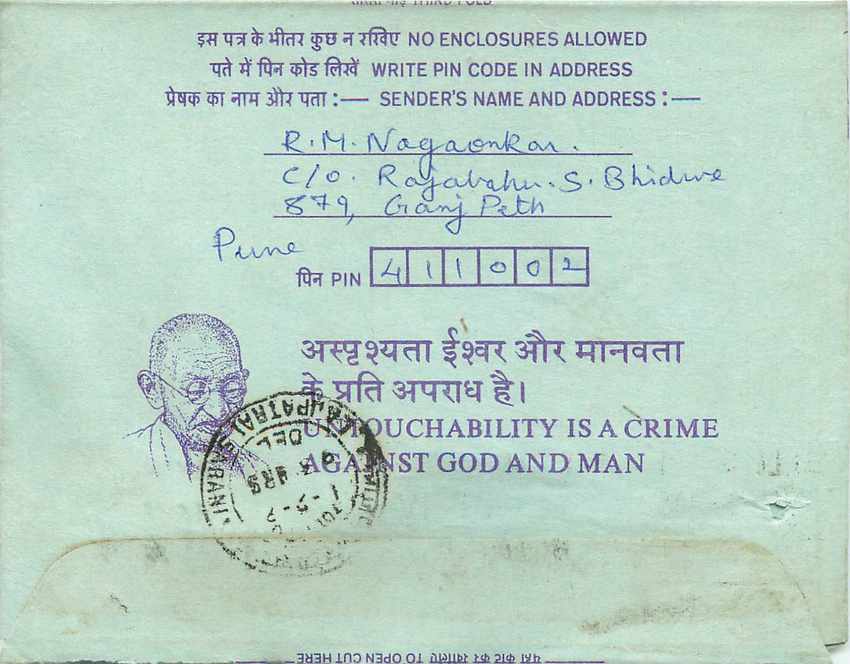 THIRD FOLD
इस पत्र के भीतर कुछ न रखिए NO ENCLOSURES ALLOWED
पते में पिन कोड लिखें WRITE PIN CODE IN ADDRESS
प्रेषक का नाम और पता :— SENDER'S NAME AND ADDRESS :—
R.M. Nagaonkar.
C/o. Rajabahu. S. Bhidwe
879, Ganj Peth
Pune
पिन PIN 411002
अस्पृश्यता ईश्वर और मानवता
के प्रति अपराध है।
UNTOUCHABILITY IS A CRIME
AGAINST GOD AND MAN
LAJPATRAI
DEL
HRS
TO OPEN CUT HERE